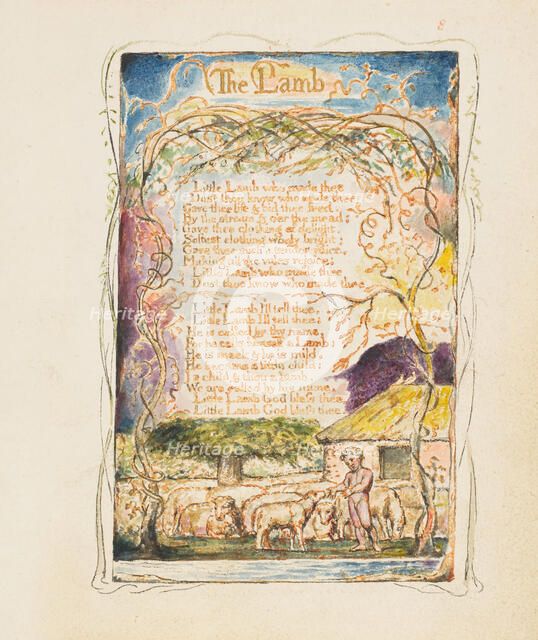 8
The Lamb
Little Lamb who made thee
Dost thou know who made thee
Gave thee life & bid thee feed.
By the stream & o'er the mead;
Gave thee clothing of delight,
Softest clothing wooly bright;
Gave thee such a tender voice,
Making all the vales rejoice:
Little Lamb who made thee
Dost thou know who made thee
Little Lamb I'll tell thee,
Little Lamb I'll tell thee;
He is called by thy name,
For he calls himself a Lamb:
He is meek & he is mild,
He became a little child:
I a child & thou a lamb,
We are called by his name.
Little Lamb God bless thee.
Little Lamb God bless thee.
Heritage
Heritage
Heritage
Heritage